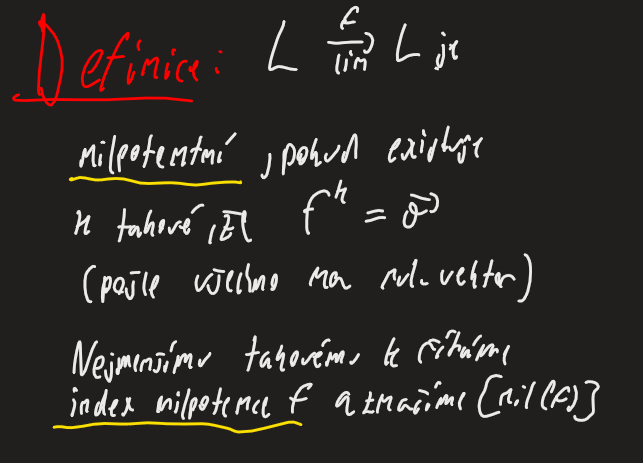 Definice: L f→ lin L je
nilpotentní, pokud existuje
k takové, že f^k = o→
(pošle všechno na nul. vektor)
Nejmenšímu takovému k říkáme
index nilpotence f a značíme [nil(f)]